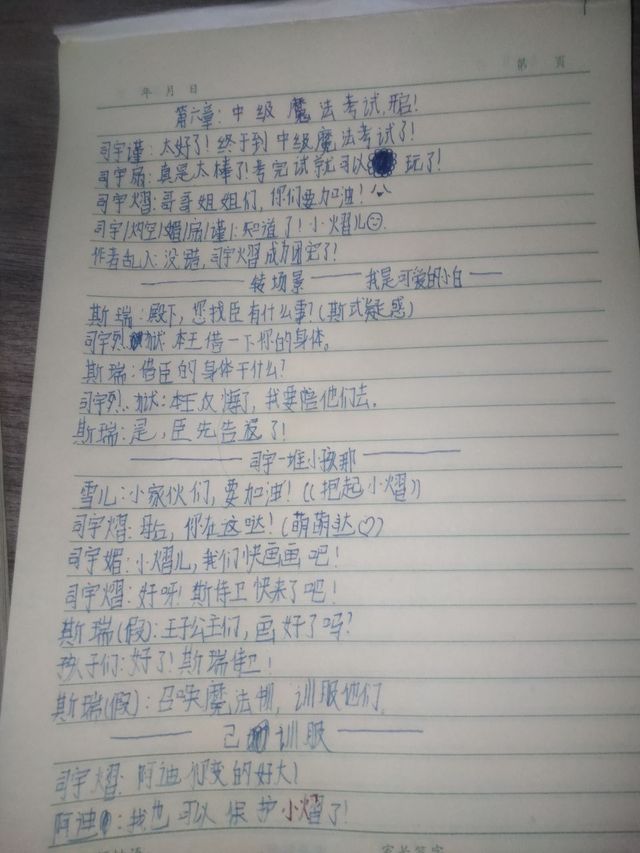 年 月 日
第 页
第六章：中级魔法考试，开启！
司宇谨：太好了！终于到中级魔法考试了！
司宇扇：真是太棒了！考完试就可以 玩了！
司宇熠：哥哥姐姐们，你们要加油！
司宇/灼/空/媚/扇/谨/：知道了！小熠儿
作者乱入：没错，司宇熠成功团宠了！
转场景 我是可爱的小白
斯瑞：殿下，您找臣有什么事？（斯式疑惑）
司宇烈狱：本王借一下你的身体。
斯瑞：借臣的身体干什么？
司宇烈狱：本王又悔了，我要陪他们去。
斯瑞：是，臣先告退了！
司宇一堆小孩那
雪儿：小家伙们，要加油！（（抱起小熠））
司宇熠：母后，你在这哒！（萌萌哒♡）
司宇媚：小熠儿，我们快画画吧！
司宇熠：好呀！斯侍卫快来了吧！
斯瑞（假）：王子公主们，画好了吗？
孩子们：好了！斯瑞侍卫！
斯瑞（假）：召唤魔法师，训服他们。
已训服
司宇熠：阿迪们变的好大！
阿迪：我也可以保护小熠了！
家长签字